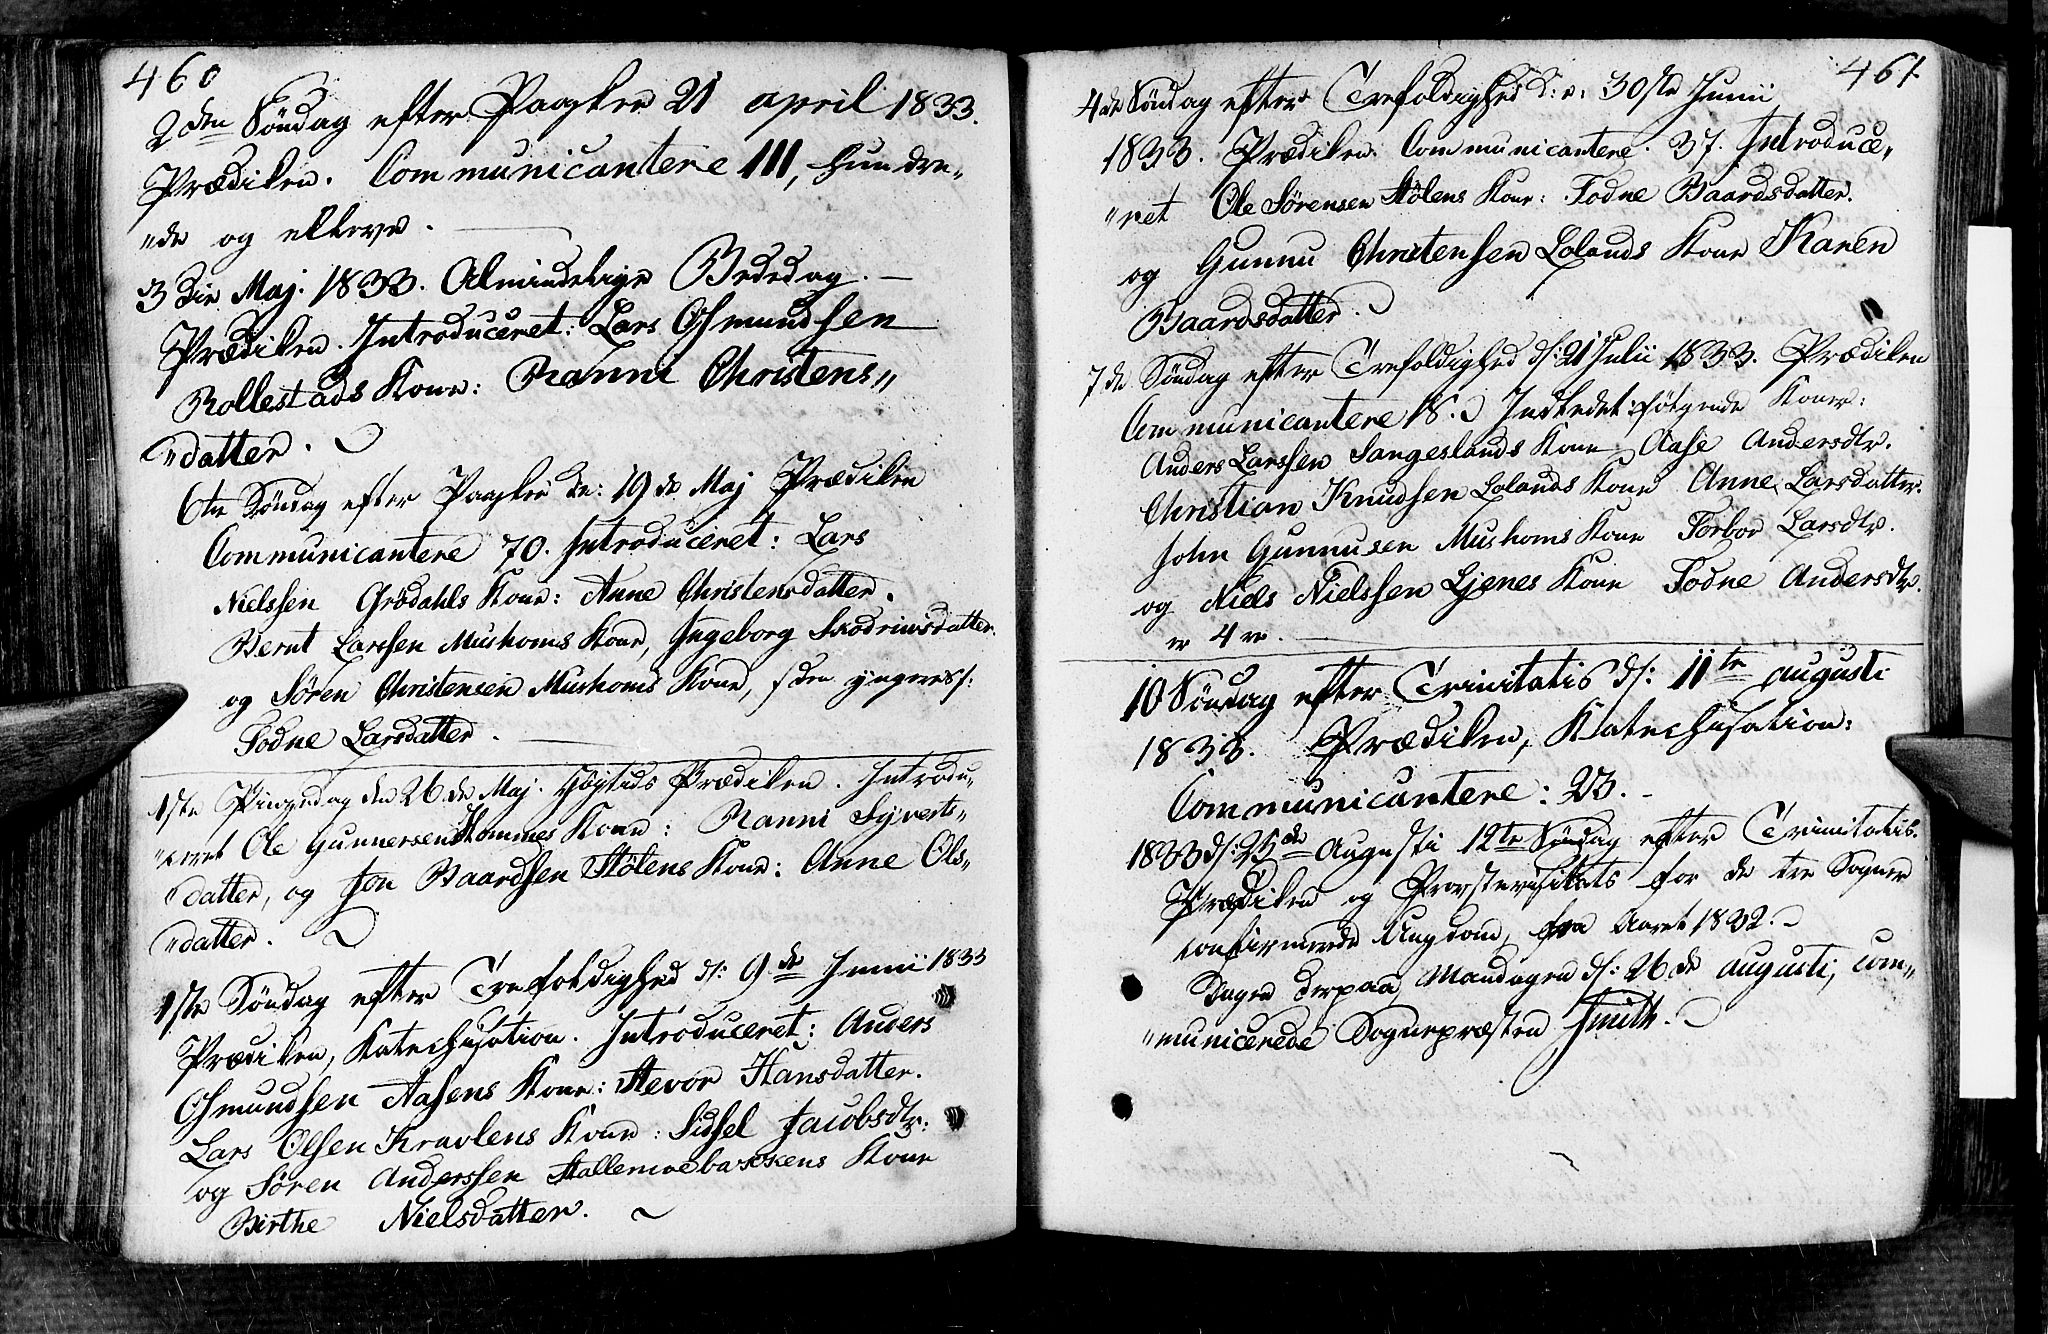 460
2den Söndag efter Paaske 21 april 1833.
Prædiken. Communicantere 111, hundre„
„de og elleve.
3die Maj. 1833. Almindelige Bededag.
Prædiken. Introduceret: Lars Osmundsen
Rollestads Kone: Ranni Christens„
„datter.
6te Söndag efter Paaske de: 19de Maj Prædiken
Communicantere 70. Introduceret: Lars
Nielssen Grödahls Kone: Anne Christensdatter.
Bernt Larssen Mushoms Kone, Ingeborg
og Sören Christensen Mushoms Kone, den yngres:
Todne Larsdatter.
1ste Pinzedag den 26de Maj. Högtids Prædiken. Introdu„
„ceret Ole Gunnersen Hommes Kone: Ranni Syverts„
„datter, og Jon Baardsen Stölens Kone: Anne Ols„
„datter.
1ste Söndag efter Trefoldighed d: 9de Junii 1833
Prædiken, Katechisation. Introduceret: Anders
Osmundsen Aasens Kone: Stevor Hansdatter.
Lars Olsen Kravlens Kone: Sidsel Jacobsdtr:
og Sören Anderssen Stallemoebakkens Kone
Birthe Nielsdatter.
461
4de Söndag efter Trefoldighed d: e: 30ste Junii
1833. Prædiken. Communicantere. 37. Introduce„
„ret Ole Sörensen Stölens Kone: Todne Baardsdatter.
og Gunnu Christensen Lolands Kone Karen
Baardsdatter.
7de Söndag efter Trefoldighed d: 21 Julii 1833. Prædiken
Communicantere 18. Indledet fölgende Koner:
Anders Larssen Sangeslands Kone Aase Andersdtr.
Christian Knudsen Lolands Kone Anne Larsdatter.
John Gunnusen Mushoms Kone Torbor Larsdtr.
og Niels Nielssen Ljenes Kone Todne Andersdtr.
er 4re.
10 Söndag efter Trinitatis d: 11te augusti
1833. Prædiken, Katechisation:
Communicantere: 23.
1833 d: 25de Augusti 12te Söndag efter Trinitatis.
Prædiken og Provstevisitats for de tre Sogner
confirmerede Ungdom, fra Aaret 1832.
Dagen derpaa, Mandagen d: 26de augusti, com„
„municerede Sognepræsten Smith.